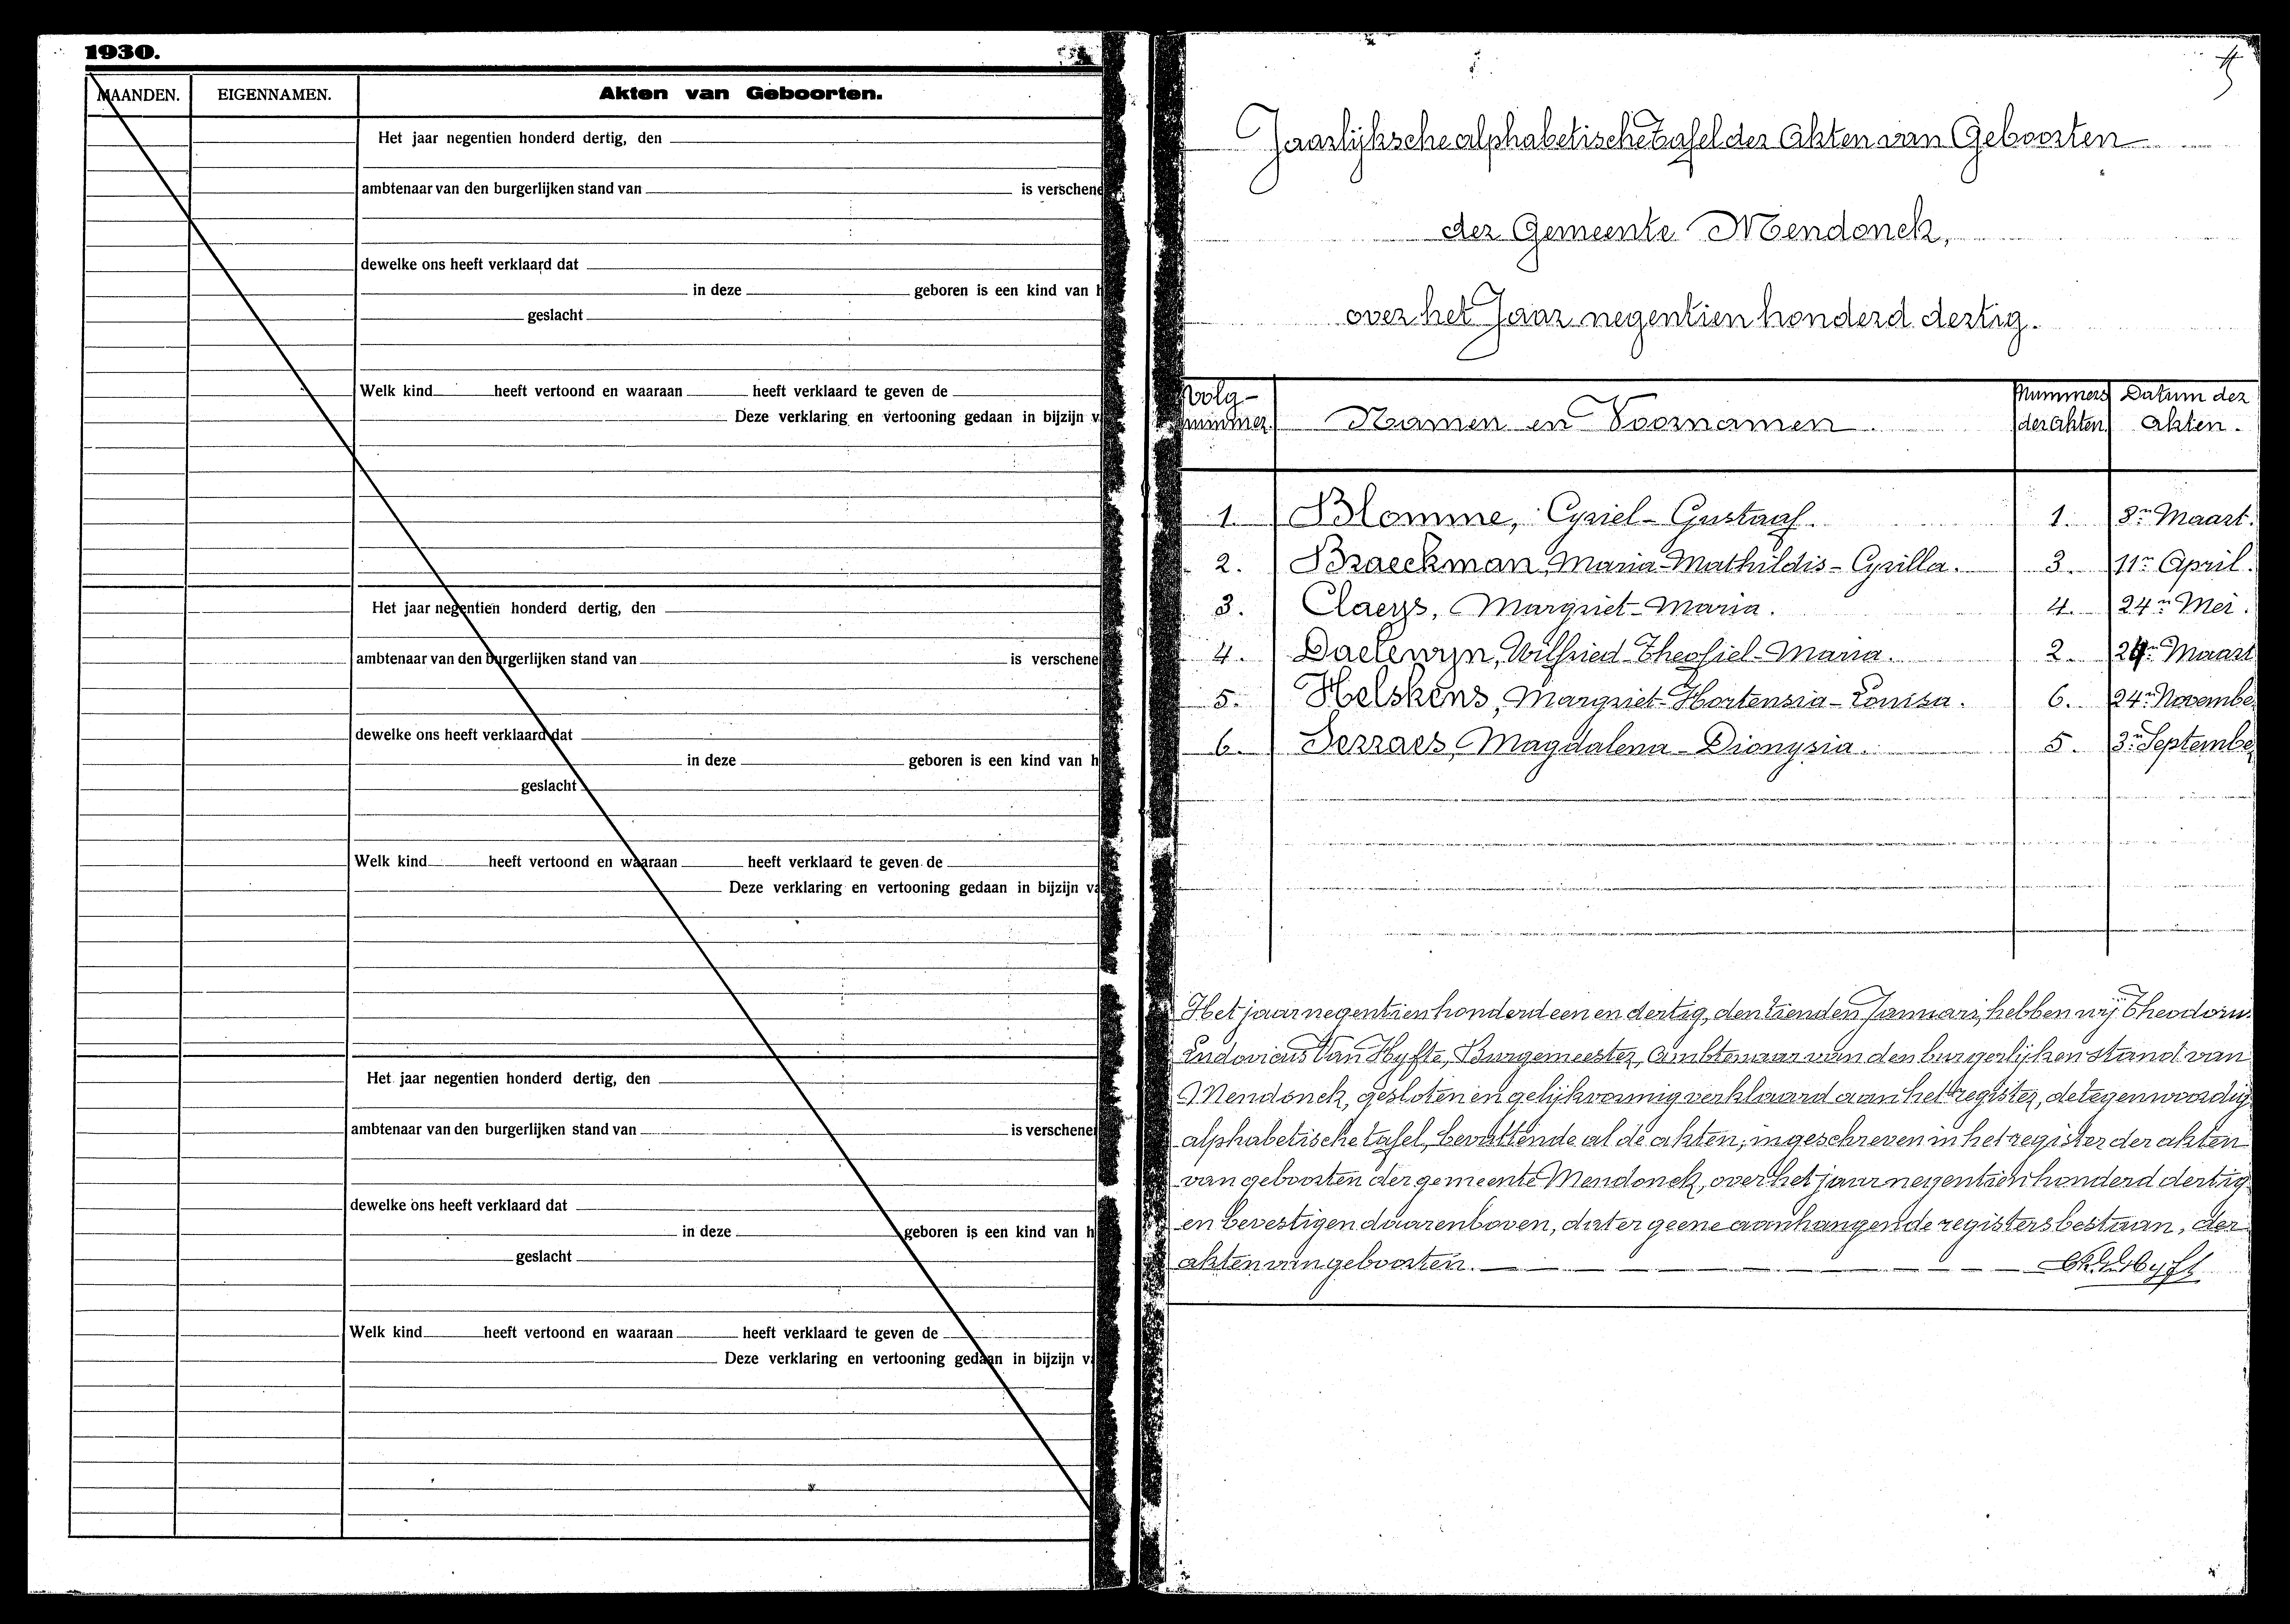 1930.
MAANDEN. EIGENNAMEN. Akten van Geboorten.
Het jaar negentien honderd dertig, den
ambtenaar van den burgerlijken stand van is verschene
dewelke ons heeft verklaard dat
in deze geboren is een kind van h
geslacht
Welk kind heeft vertoond en waaraan heeft verklaard te geven de
Deze verklaring en vertooning gedaan in bijzijn v
Het jaar negentien honderd dertig, den
ambtenaar van den burgerlijken stand van is verschene
dewelke ons heeft verklaard dat
in deze geboren is een kind van h
geslacht
Welk kind heeft vertoond en waaraan heeft verklaard te geven de
Deze verklaring en vertooning gedaan in bijzijn va
Het jaar negentien honderd dertig, den
ambtenaar van den burgerlijken stand van is verschene
dewelke ons heeft verklaard dat
in deze geboren is een kind van h
geslacht
Welk kind heeft vertoond en waaraan heeft verklaard te geven de
Deze verklaring en vertooning gedaan in bijzijn v
Jaarlijksche alphabetische tafel der Akten van Geboorten
der Gemeente Mendonck,
over het Jaar negentien honderd dertig.
Volg- Nummers Datum der
nummer. Namen en Voornamen. der akten. akten.
1. Blomme, Cyriel-Gustaaf. 1. 8n Maart.
2. Braeckman, Maria-Mathildis-Cyrilla. 3. 11n April.
3. Claeys, Margriet-Maria. 4. 24n Mei.
4. Daelewyn, Wilfried-Theofiel-Maria. 2. Maart
5. Helskens, Margriet-Hortensia-Louisa. 6. 24n Novembe
6. Serraes, Magdalena-Dionysia. 5. 3n Septembe
Het jaar negentien honderd een en dertig, den tienden Januari, hebben wij Theodoru
Ludovicus Van Hyfte, Burgemeester, Ambtenaar van den burgerlijken stand van
Mendonck, gesloten en gelijkvormig verklaard aan het register, de tegenwoordig
alphabetische tafel, bevattende al de akten, ingeschreven in het register der akten
van geboorten der gemeente Mendonck, over het jaar negentien honderd dertig
en bevestigen daarenboven, dat er geene aanhangende registers bestaan, der
akten van geboorten.